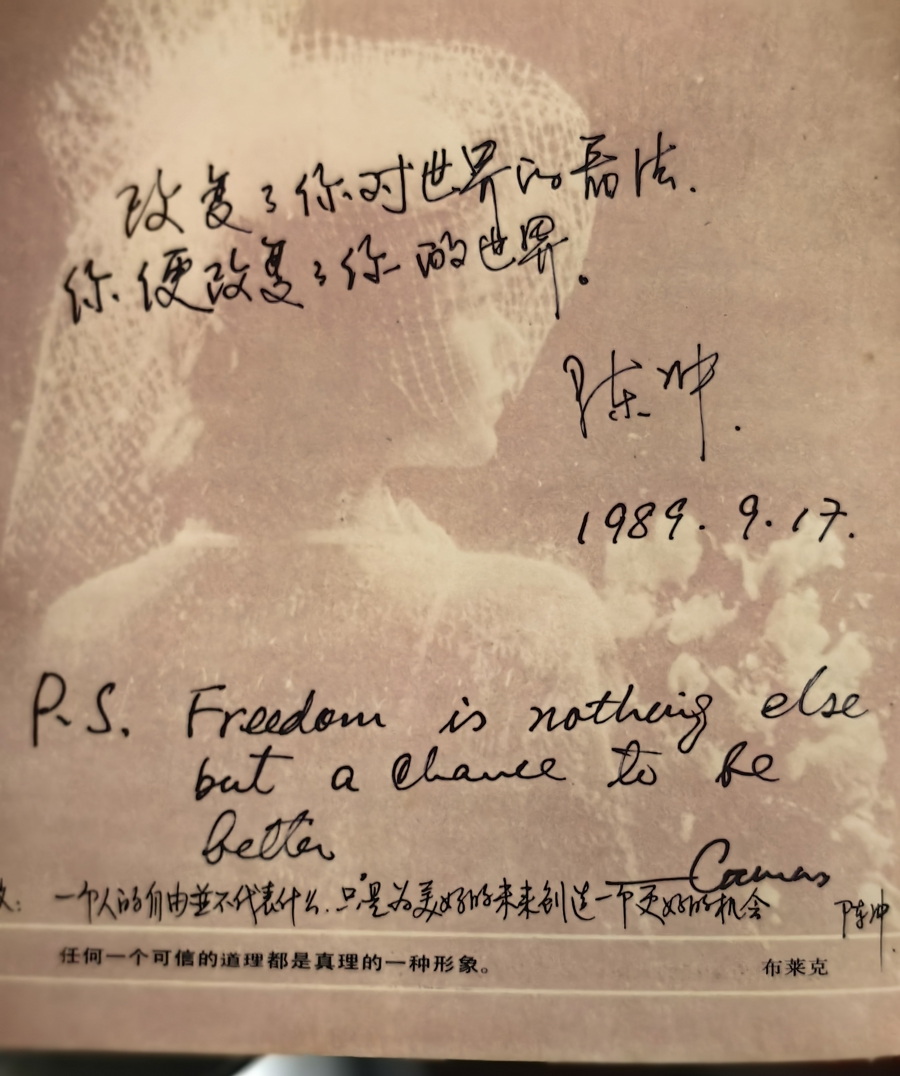 改变了你对世界的看法.
你便改变了你的世界。
陈冲.
1989. 9. 17.
P.S. Freedom is nothing else
but a chance to be
better
——Camus
一个人的自由並不代表什么.只是为美好的未来创造一个更好的机会 陈冲
任何一个可信的道理都是真理的一种形象。 布莱克